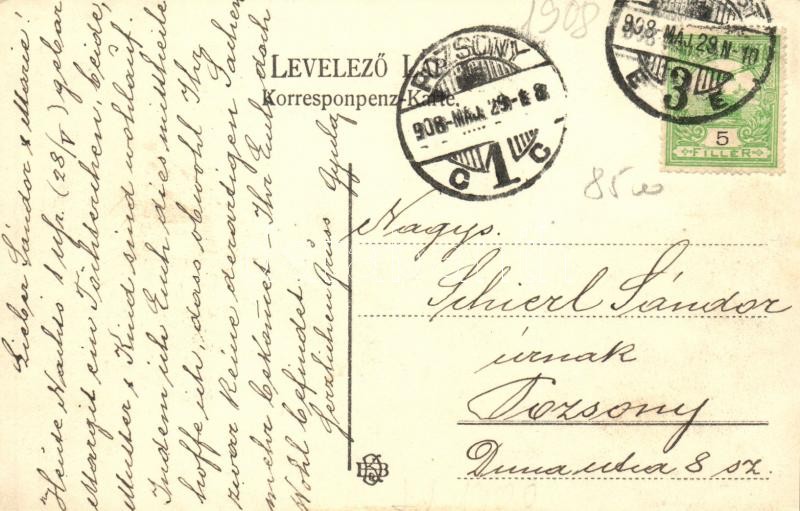 Lieber Sándor & Marie!
Heute Nachts 1 Uhr (28/V) gebar
Margit ein Töchterchen, beide,
Mutter & Kind sind wohlauf.
Indem ich Euch dies mittheile
hoffe ich, dass obwohl Ihr
zwar keine derartigen Sachen
mehr bekommet – Ihr Euch doch
Wohl befindet.
Herzlichen Gruss Gyula
1908
LEVELEZŐ
Korresponpenz-Karte.
POZSONY
908-MÁJ. 29.-E 8
C 1 C
908-MÁJ. 29. N-10
E 3 E
5
FILLÉR
85
Nagys.
Schierl Sándor
úrnak
Pozsony
Duna utca 8 sz.